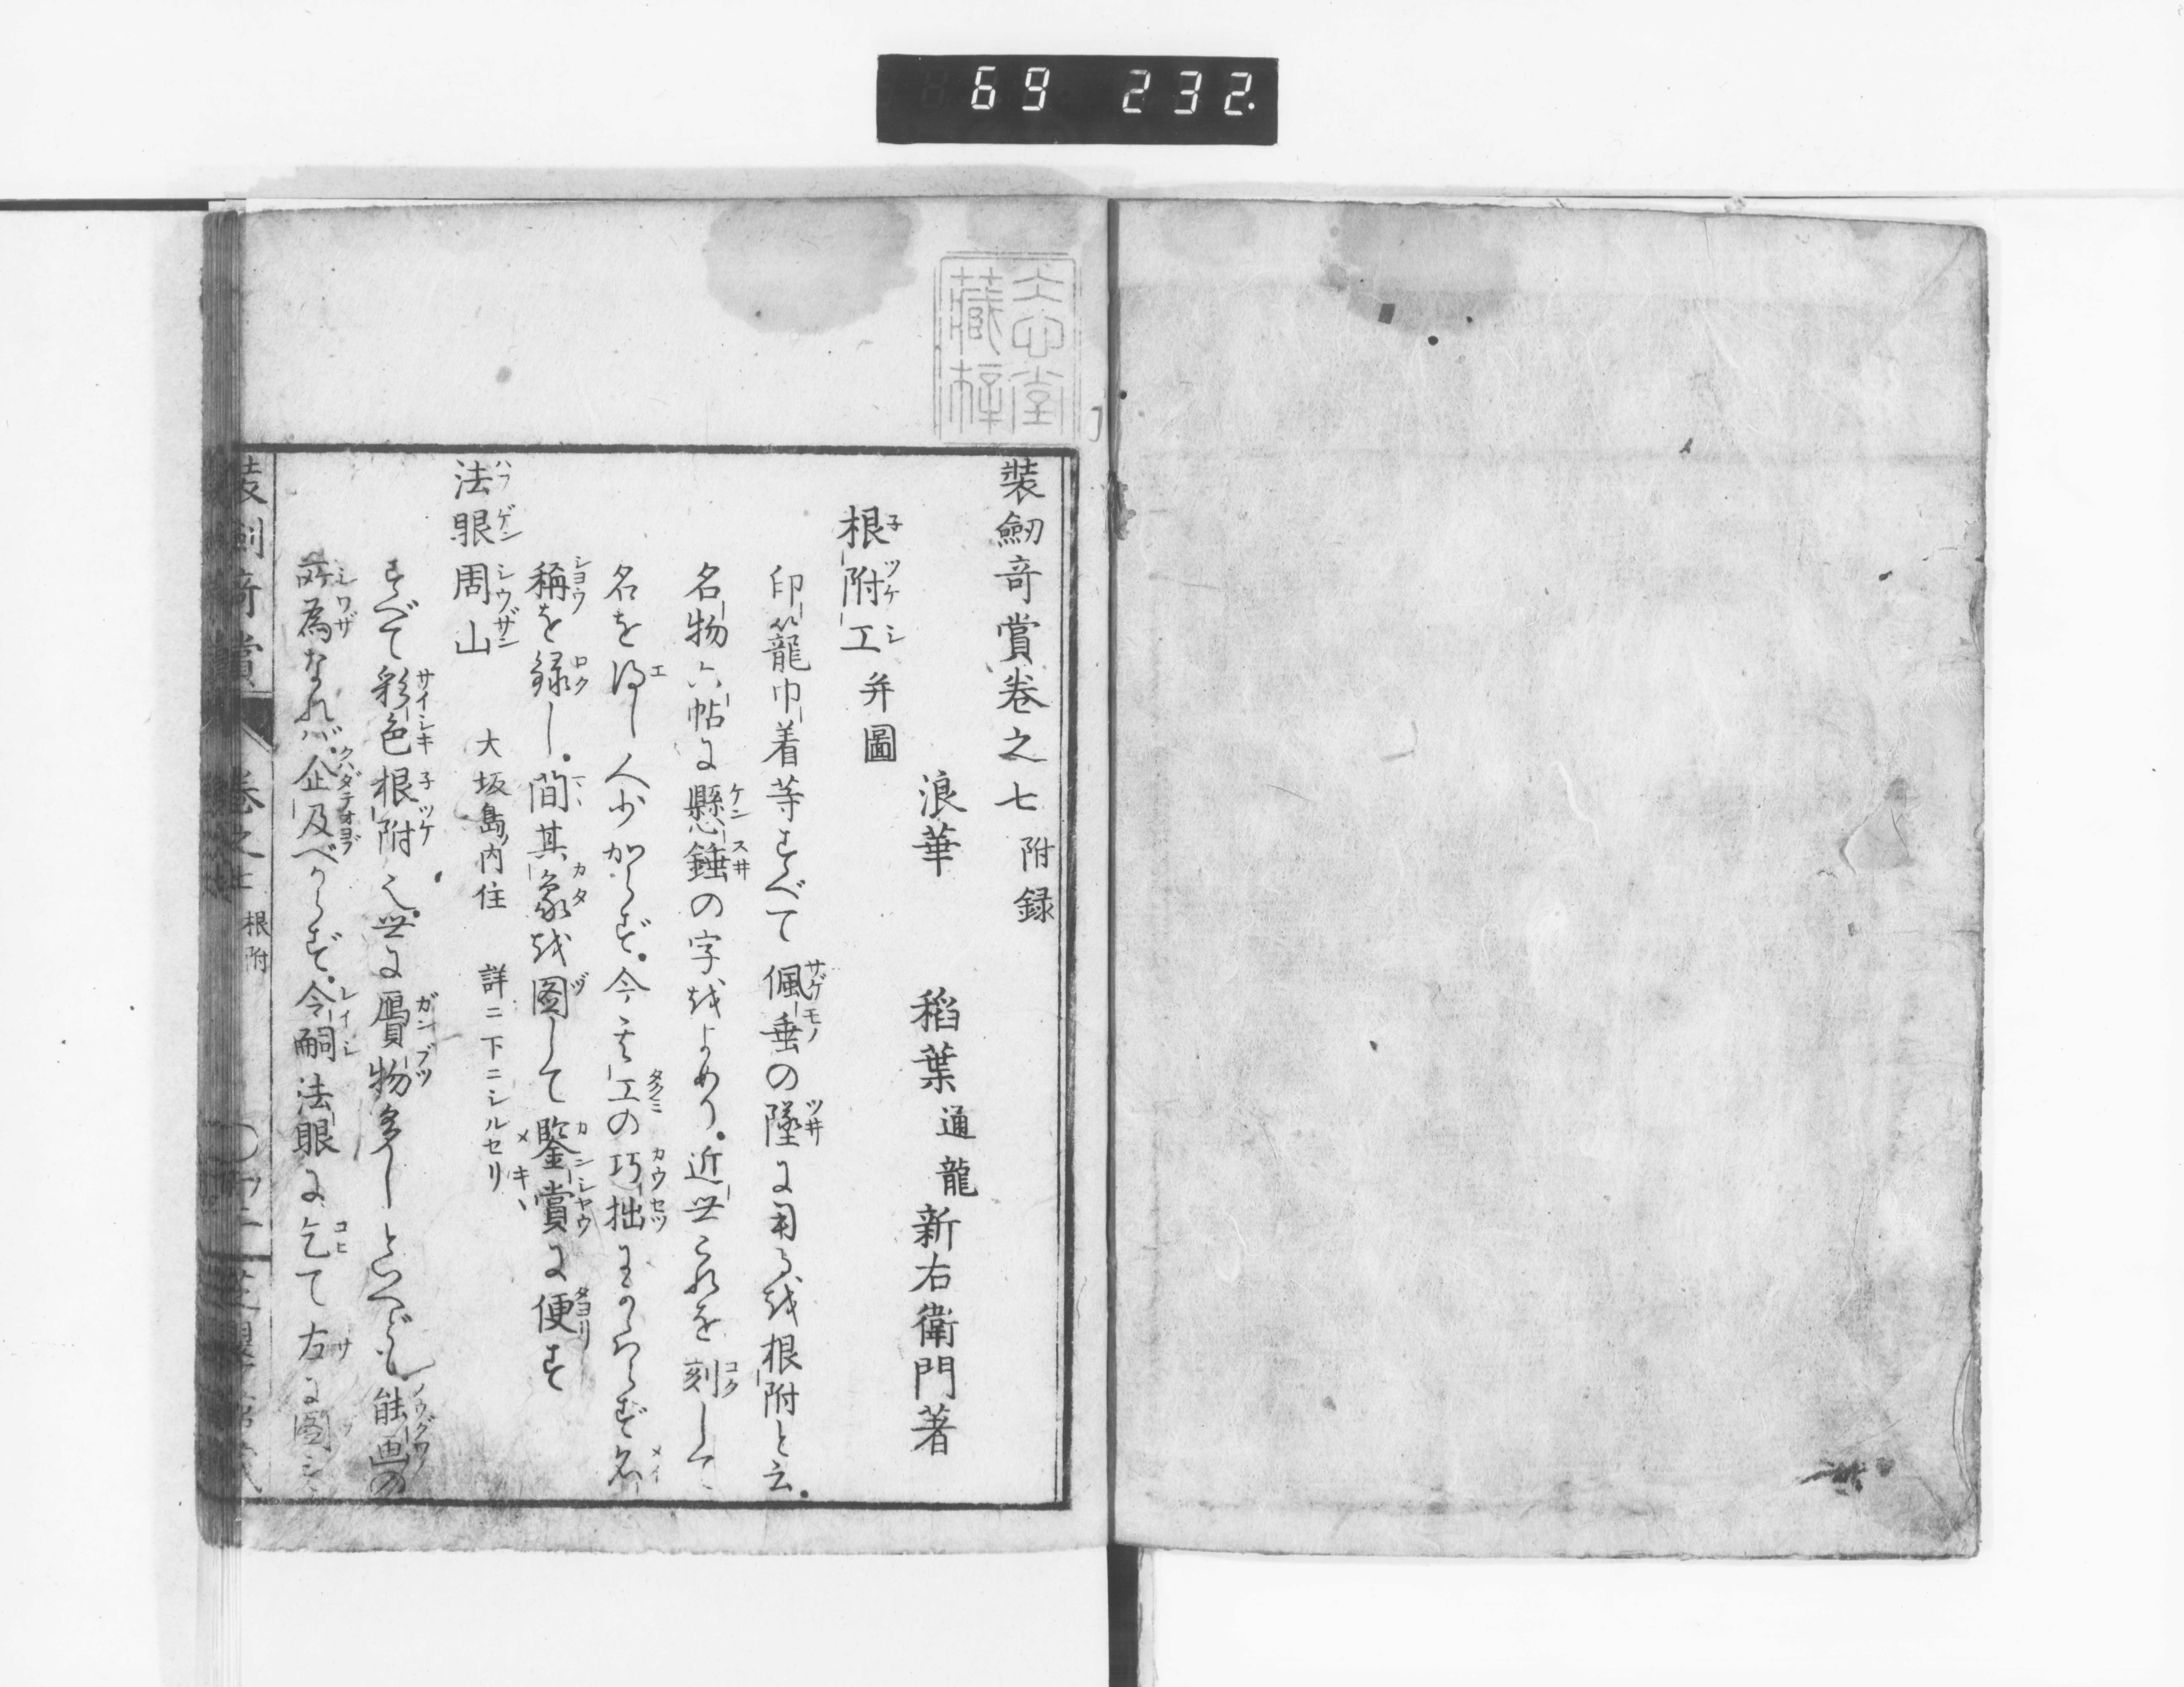 69 232.
志堂
藏梓
裝劒奇賞卷之七 附録
浪華 稻葉通龍新右衛門著
根附工并圖
印籠巾着等すべて佩垂の墜に用る越根附と云。
名物六帖に懸錘の字越よめり。近世これを刻して
名を得し人少からず。今其工の巧拙にかゝはらず名
稱を録し。間其象越圖して鑒賞に便す
法眼周山 大坂島ノ内住 詳ニ下ニシルセリ
すべて彩色根附也。世に贋物多しといへども能画の
所為なれバ企及べからず。令嗣法眼に乞て左に圖
裝劍奇賞 卷之七 根附